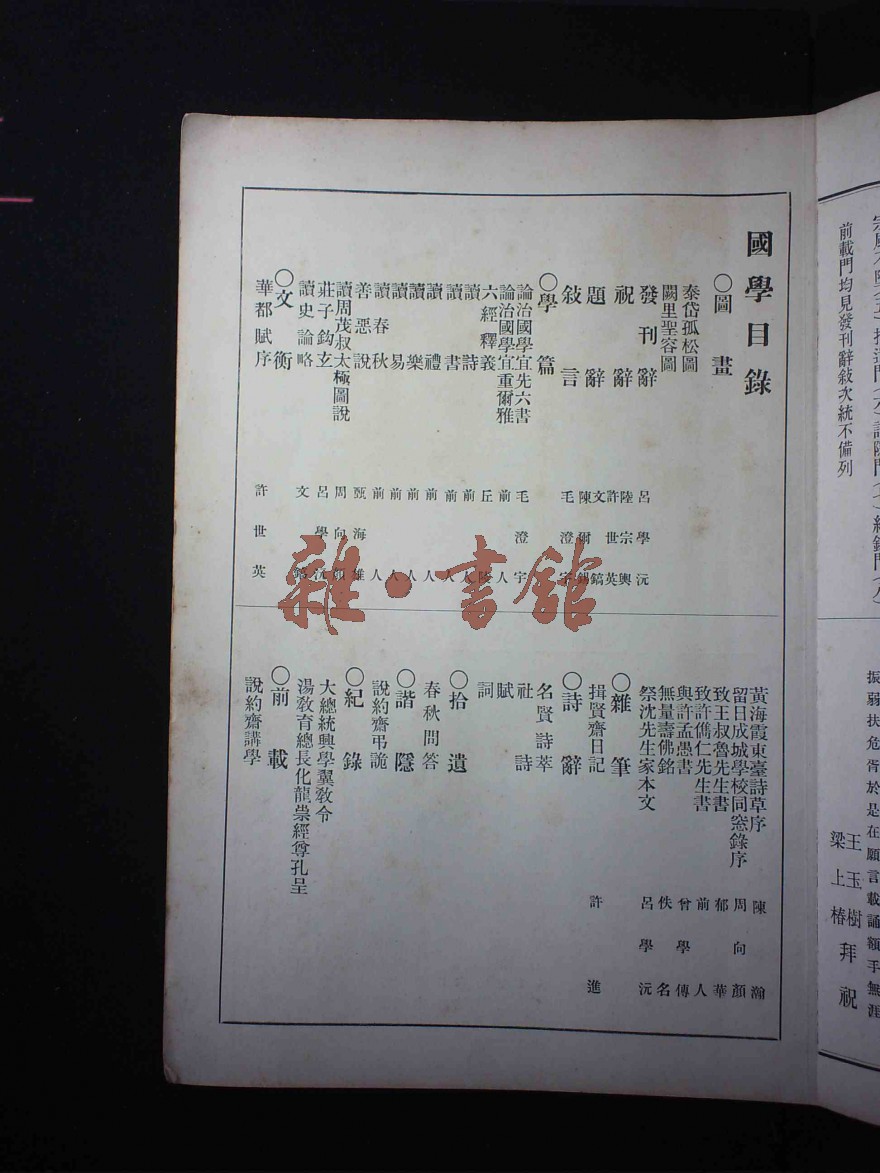 前載門均見發刊辭敍次統不備列
振弱扶危胥於是在願言載誦額手無涯
王玉樹
梁上椿拜祝
國學目錄
○圖畫
泰岱孤松圖
闕里聖容圖
發刊辭 呂學沅
祝辭 陸宗輿
許世英
題辭 文鎬
陳爾錫
敍言 毛澄宇
○學篇
論治國學宜先六書 毛澄宇
論治國學宜重爾雅 前人
六經釋義 丘陵
讀詩 前人
讀書 前人
讀禮 前人
讀樂 前人
讀易 前人
讀春秋 前人
善惡說 甄海雄
讀周茂叔太極圖說 周向顏
莊子鈎玄 呂學沅
讀史論略 文鎬
○文衡
華都賦序 許世英
黃海霞東臺詩草序 陳瀚
留日成城學校同窓錄序 周向顏
致王叔魯先生書 郁華
致許儁仁先生書 前人
與許孟愚書 曾學傳
無量壽佛銘 佚名
祭沈先生家本文 呂學沅
○雜筆
揖賢齋日記 許進
○詩辭
名賢詩萃
社詩
賦
詞
○拾遺
春秋問答
○諧隱
說約齋弔詭
○紀錄
大總統興學翼敎令
湯敎育總長化龍崇經尊孔呈
○前載
說約齋講學
雜·書館